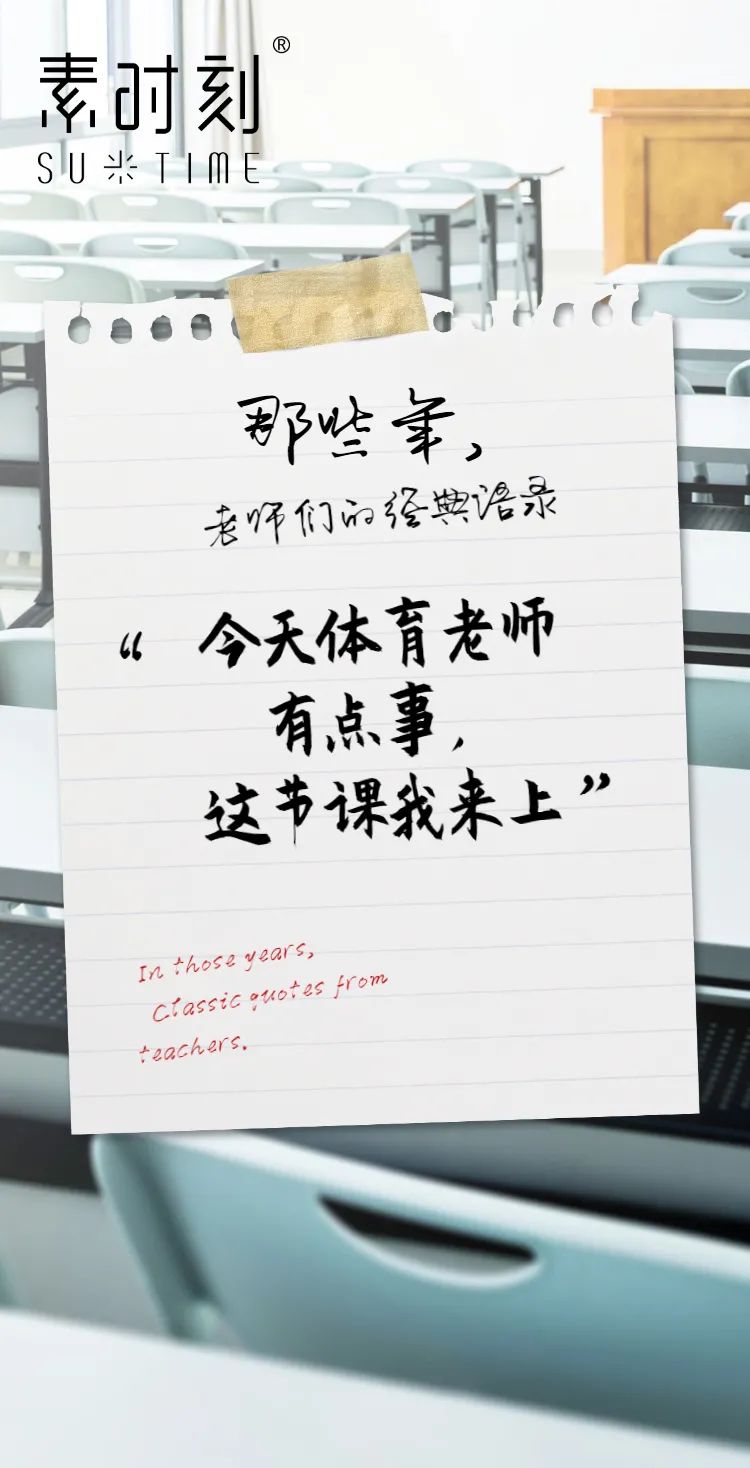 素时刻®
SU TIME
那些年,
老师们的经典语录
“ 今天体育老师
有点事,
这节课我来上 ”
In those years,
Classic quotes from
teachers.